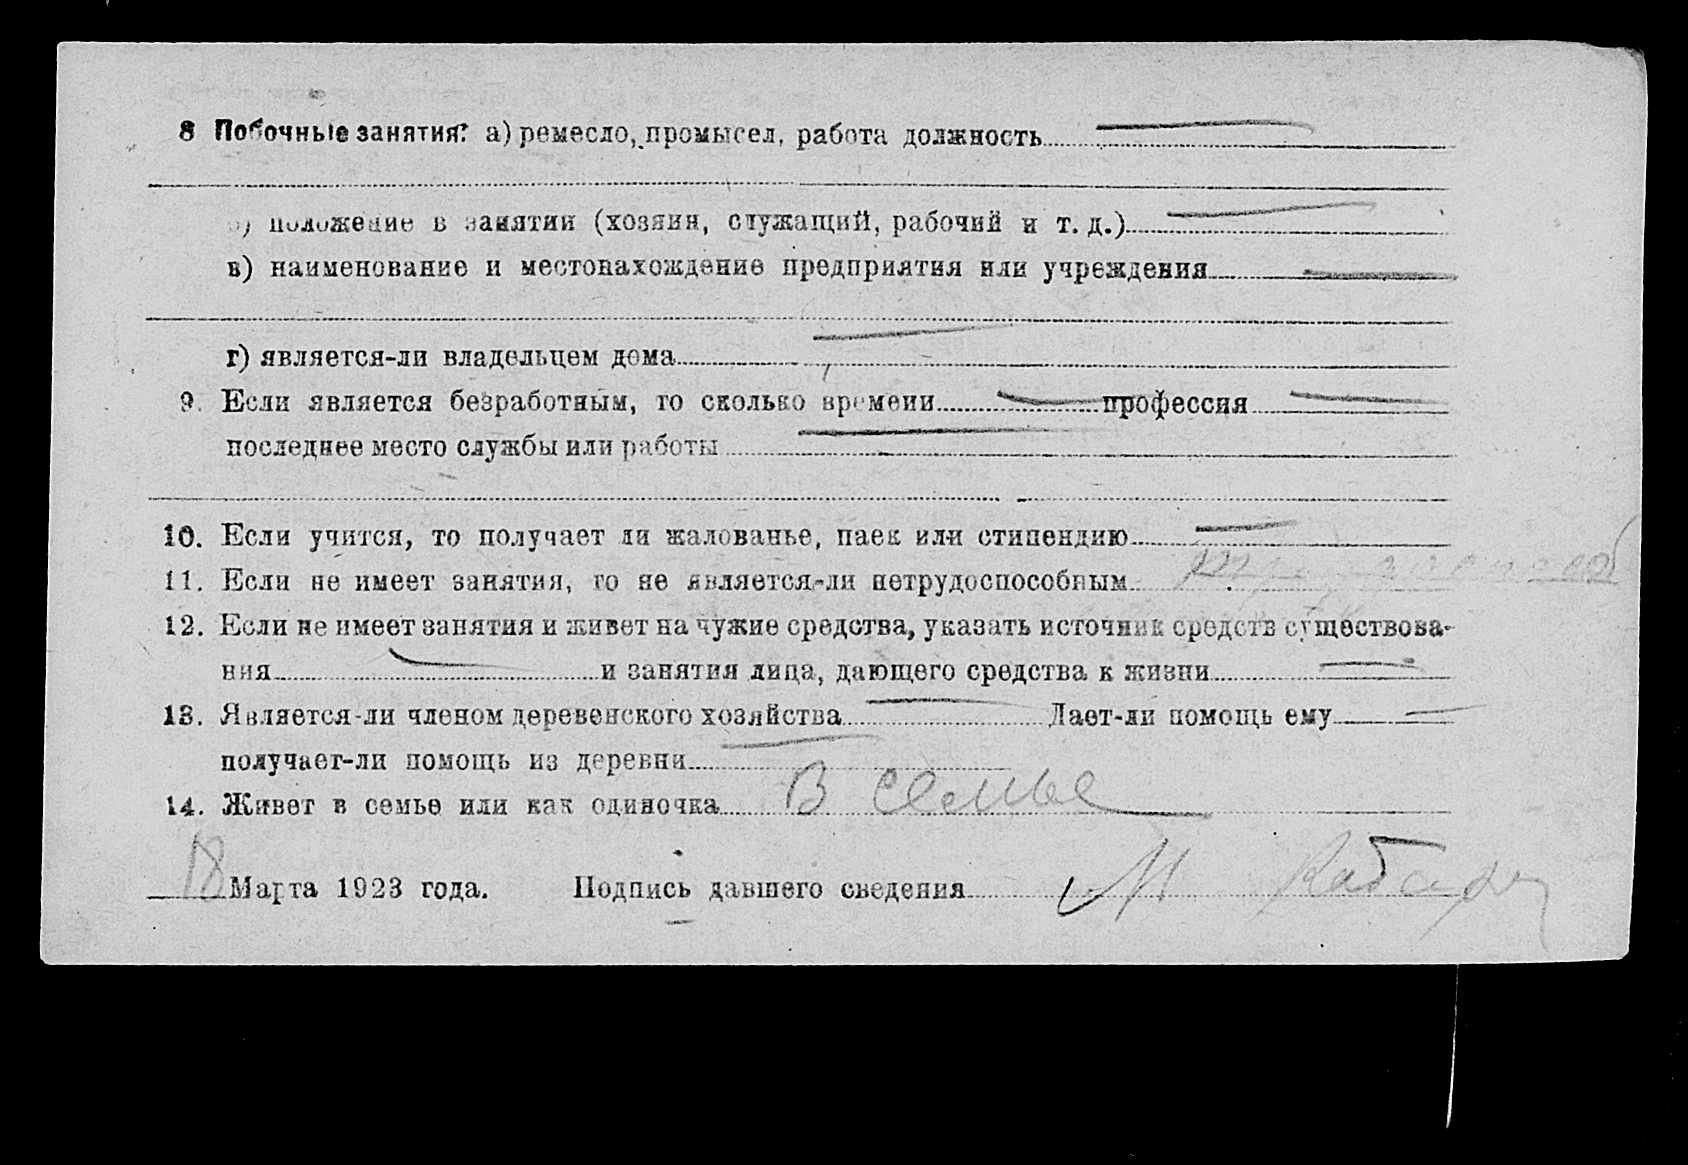 8 Побочные занятия: а) ремесло, промысел, работа должность
б) положение в занятии (хозяин, служащий, рабочий и т. д.)
в) наименование и местонахождение предприятия или учреждения
г) является-ли владельцем дома
9. Если является безработным, то сколько времени профессия
последнее место службы или работы
10. Если учится, то получает ли жалованье, паек или стипендию
11. Если не имеет занятия, то не является-ли нетрудоспособным
12. Если не имеет занятия и живет на чужие средства, указать источник средств существова-
ния и занятия лица, дающего средства к жизни
13. Является-ли членом деревенского хозяйства Дает-ли помощь ему
получает-ли помощь из деревни
14. Живет в семье или как одиночка В семье
18 Марта 1923 года. Подпись давшего сведения М